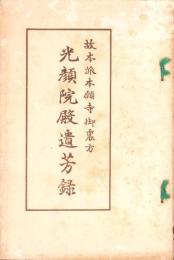 故本派本願寺御裏方
光顔院殿遺芳録